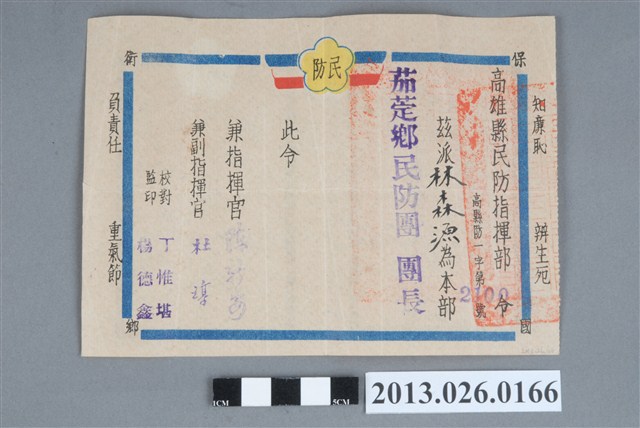 民防
保
國
衛
鄉
知廉恥 辨生死
高雄縣民防指揮部 令
高縣防一字第2100號
茲派林森源為本部
茄萣鄉民防團 團長
此令
兼指揮官
兼副指揮官 杜
校對 丁惟堪
監印 楊德鑫
負責任 重氣節
1CM
5CM
2013.026.0166